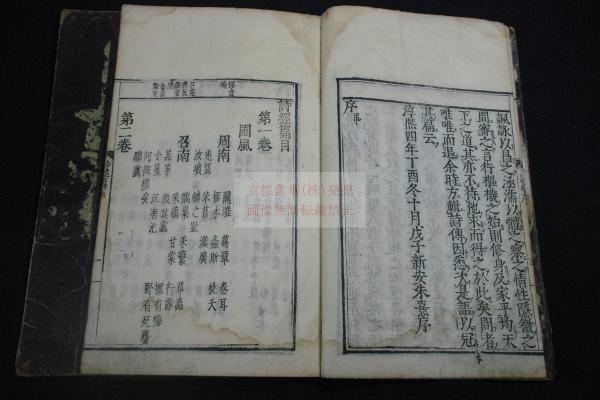 諷詠以昌之涵濡以體之察之情性隱微之
間審之言行樞機之始則修身及家平均天
下之道其亦不待他求而得之於此矣問者
唯唯而退余時方輯詩傳因悉次是語以冠
其篇云
淳熙四年丁酉冬十月戊子新安朱熹序
序
詩經篇目
第一卷
國風
周南
關雎 葛覃 卷耳
樛木 螽斯 桃夭
兔罝 芣苢 漢廣
汝墳 麟之趾
召南
鵲巢 采蘩 草蟲
采蘋 甘棠 行露
羔羊 殷其靁 摽有梅
小星 江有汜 野有死麕
何彼襛矣
騶虞
第二卷
京都含章(株)発売
画像無断転載禁止